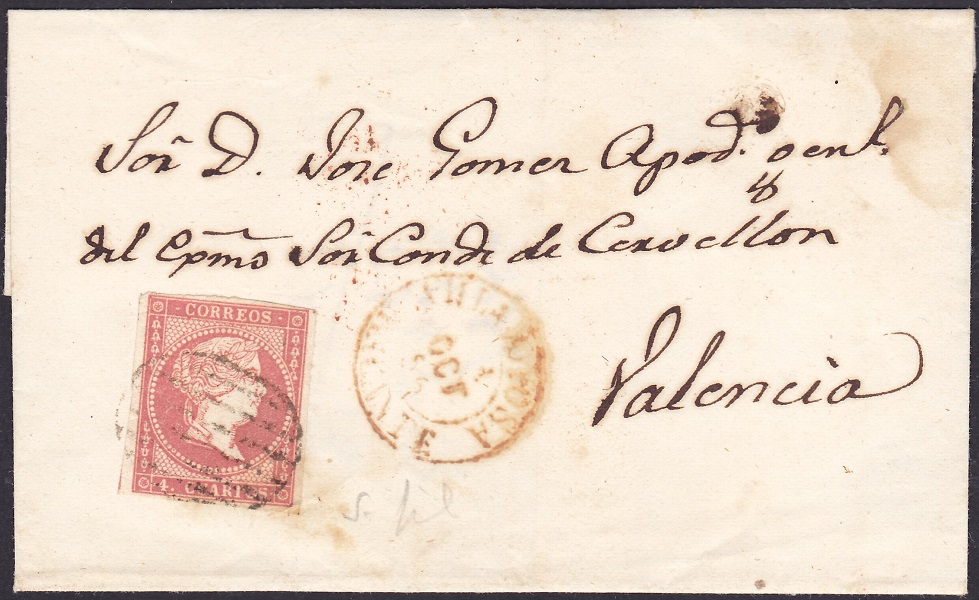 Sor. D. Jose Gomez Apod.º genl.
del Exmo Sor Conde de Cervellon
Valencia
CORREOS
4. CUARTOS
VILLAJOYOSA
OCT
ALICANTE
s. fil